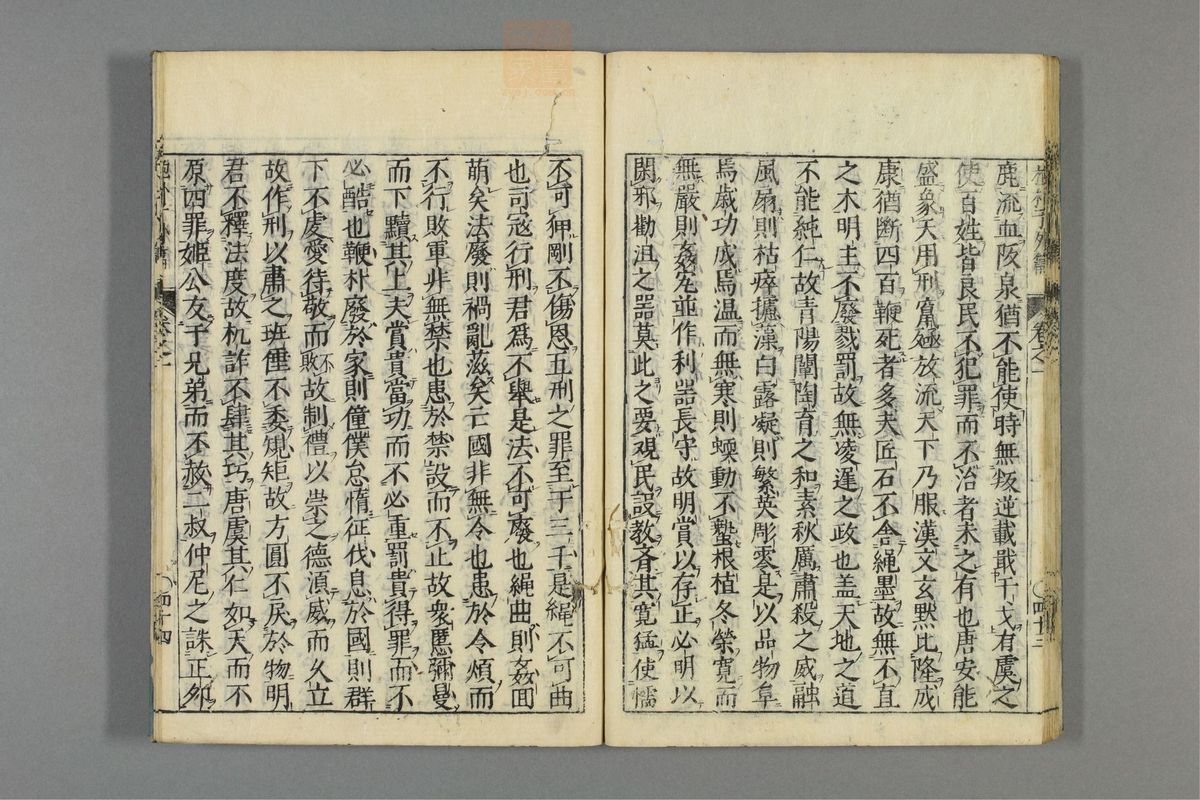 鹿流血阪泉猶不能使時無叛逆載戢干戈有虞之
使百姓皆良民不犯罪而不治者未之有也唐安能
盛象天用刑竄殛放流天下乃服漢文玄默比隆成
康猶斷四百鞭死者多夫匠石不舍繩墨故無不直
之木明主不廢戮罰故無凌遲之政也盖天地之道
不能純仁故青陽闡陶育之和素秋厲肅殺之威融
風扇則枯瘁攄藻白露凝則繁英彫零是以品物阜
焉歲功成焉温而無寒則蝡動不蟄根植冬榮寛而
無嚴則姦宄並作利器長守故明賞以存正必明以
閑邪勸沮之器莫此之要視民設教斉其寛猛使懦
卷之一
四十三
不可狎剛不傷恩五刑之罪至于三千是繩不可曲
也司冦行刑君爲不舉是法不可廢也繩曲則姦囬
萌矣法廢則禍亂滋矣亡國非無令也患於令煩而
不行敗軍非無禁也患於禁設而不止故衆慝彌曼
而下黷其上夫賞貴當功而不必重罰貴得罪而不
必酷也鞭朴廢於家則僮僕怠惰征伐息於國則群
下不虔愛待敬而不敗故制禮以崇之德湏威而久立
故作刑以肅之班倕不委規矩故方圓不戾於物明
君不釋法度故机詐不肆其巧唐虞其仁如天而不
原四罪姫公友于兄弟而不赦二叔仲尼之誅正夘
卷之一
四十四